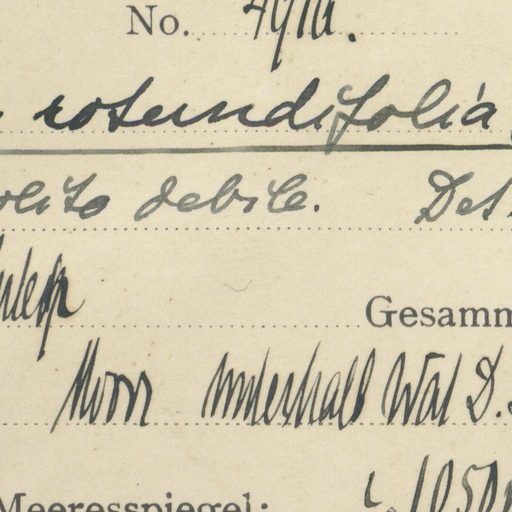 No. 491a.
rotundifolia
olito debile. Det.
Gesamm
Moor unterhalb Wal D.
Meeresspiegel: c. 1050